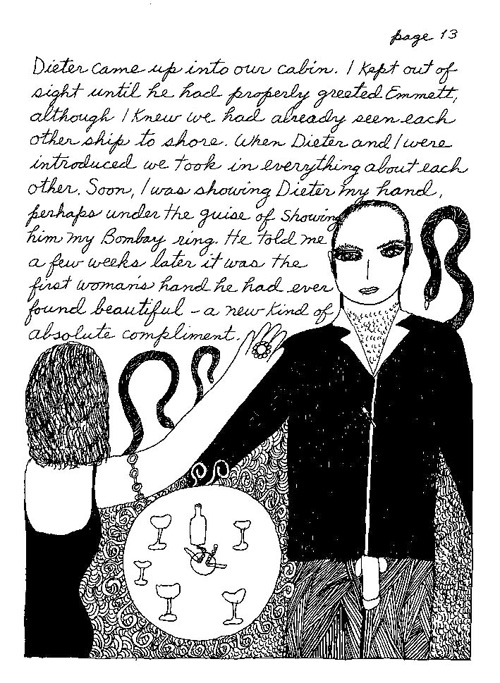 page 13
Dieter came up into our cabin. I kept out of
sight until he had properly greeted Emmett,
although I knew we had already seen each
other ship to shore. When Dieter and I were
introduced we took in everything about each
other. Soon, I was showing Dieter my hand,
perhaps under the guise of showing
him my Bombay ring. He told me
a few weeks later it was the
first woman's hand he had ever
found beautiful – a new kind of
absolute compliment.